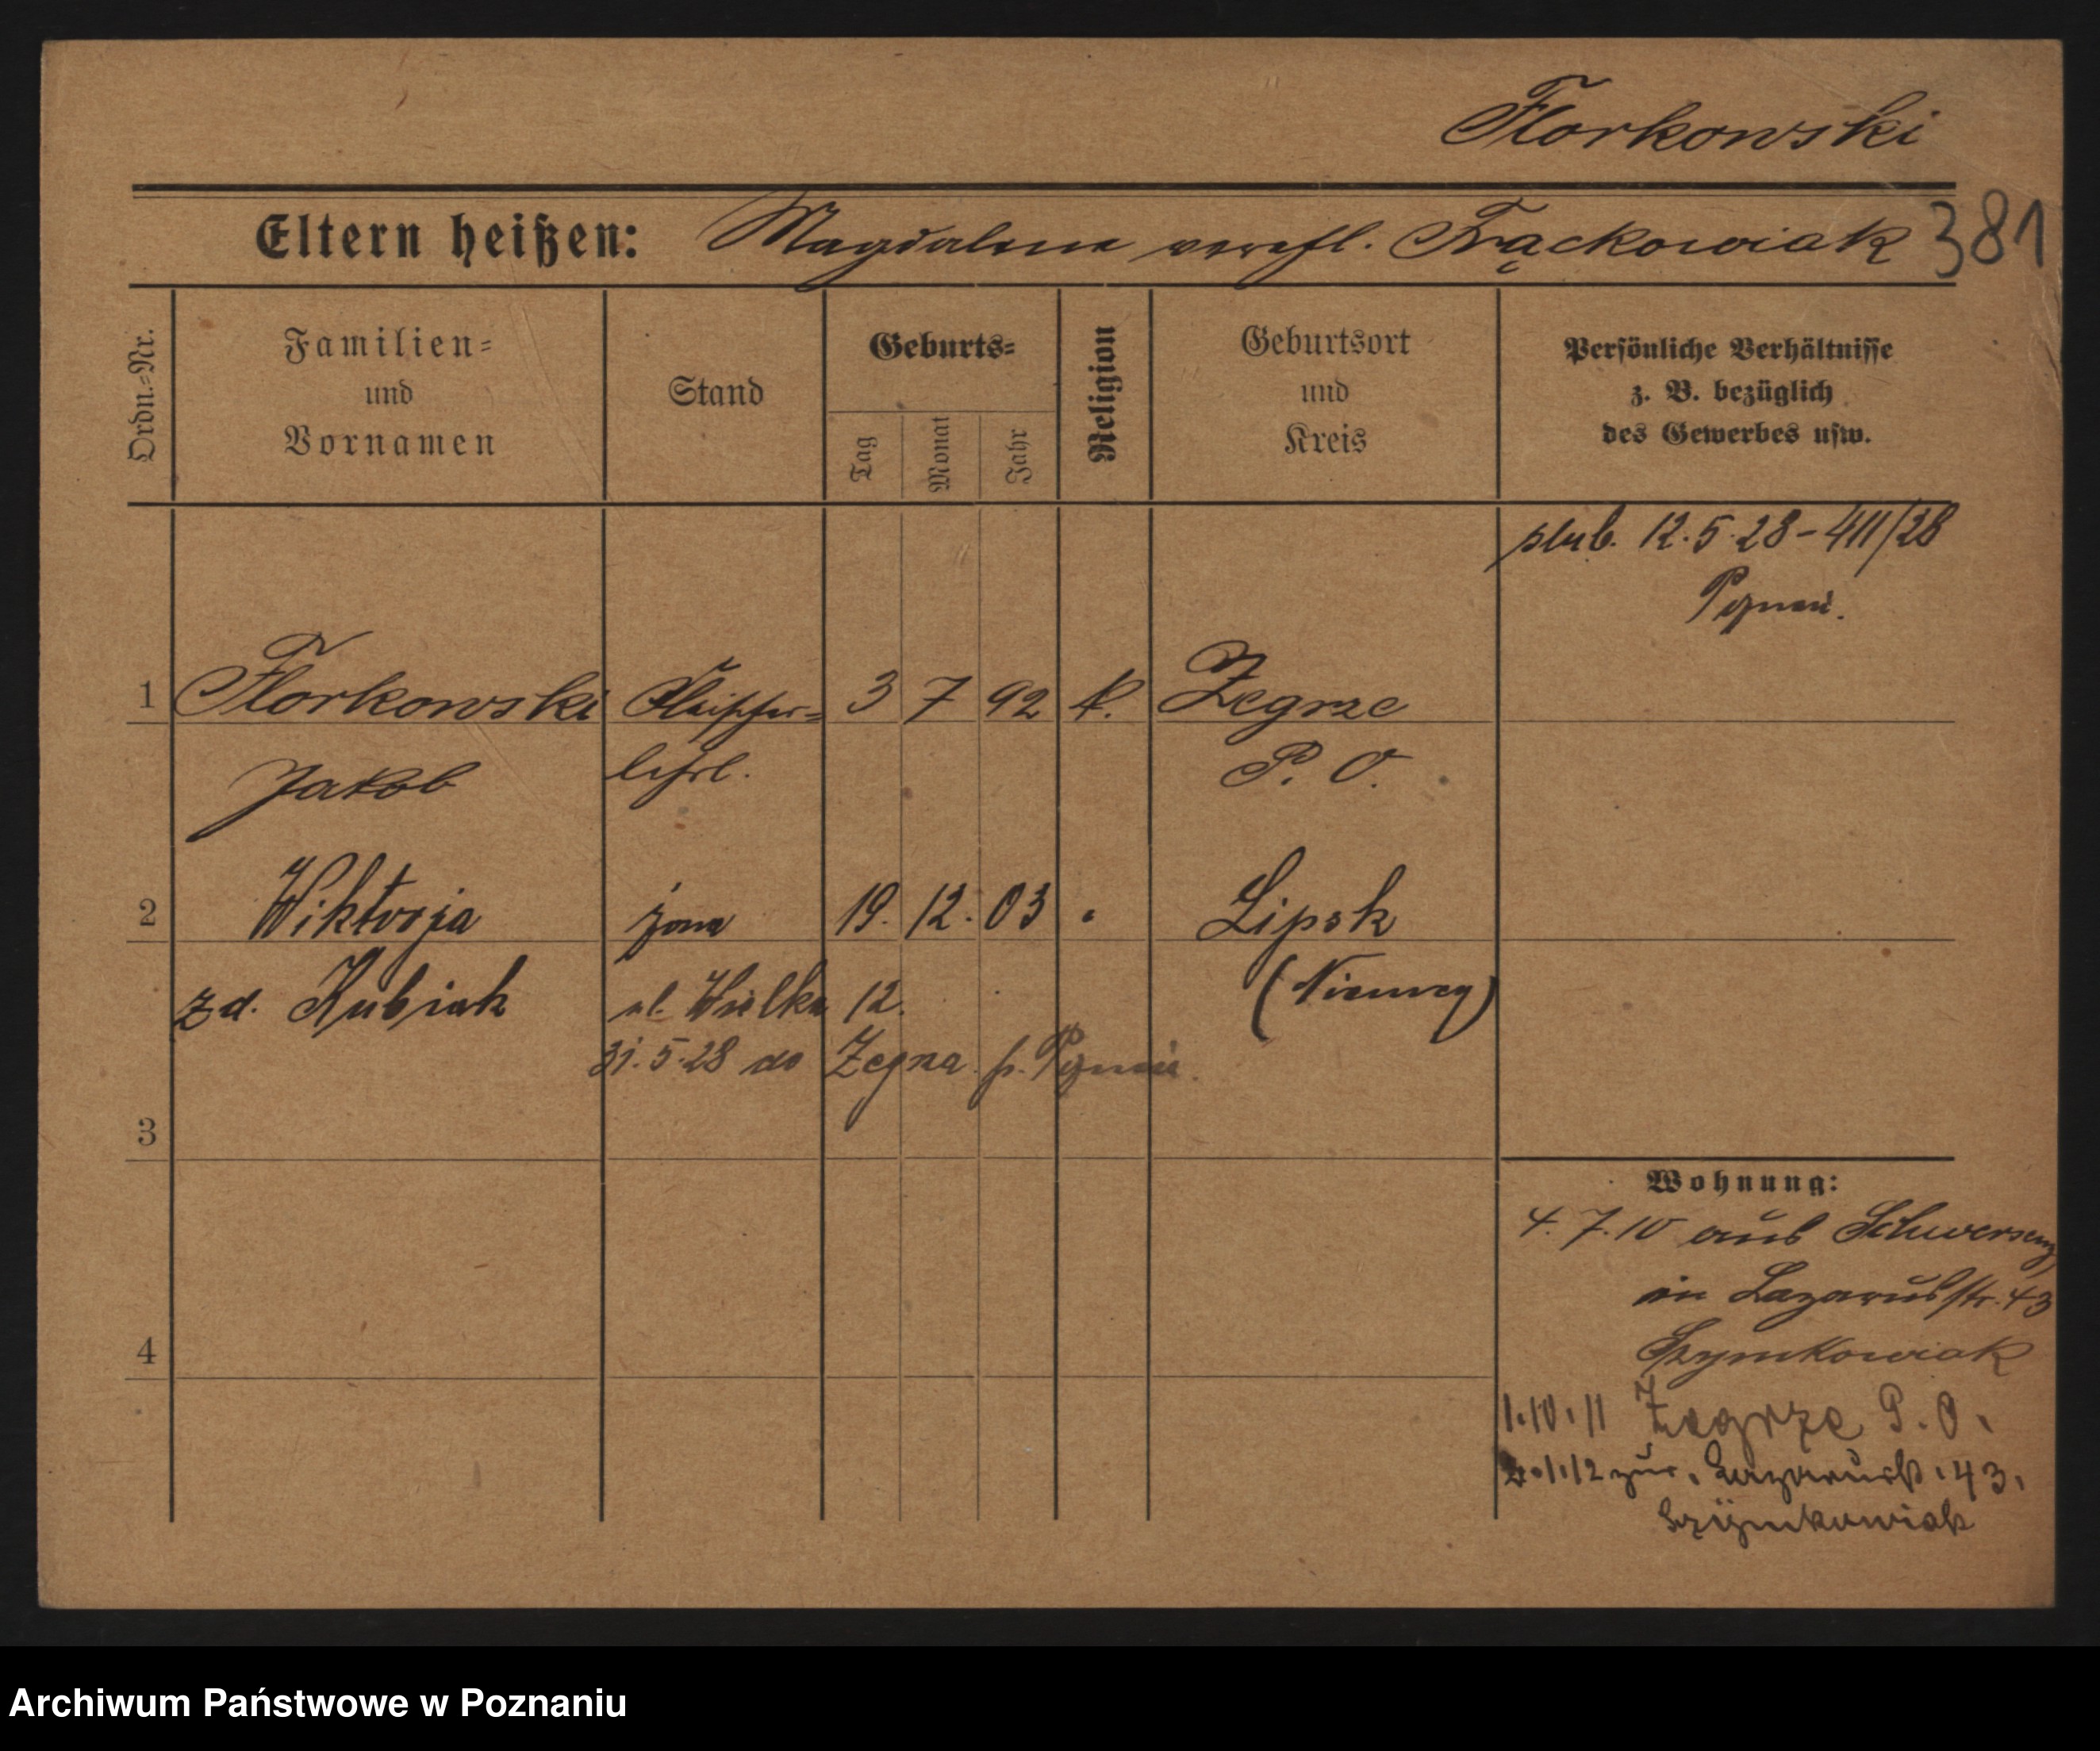 Florkowski
Eltern heißen: Magdalena verehl. Frąckowiak 381
Ordn.-Nr.
Familien-
und
Vornamen
Stand
Geburts-
Tag
Monat
Jahr
Religion
Geburtsort
und
Kreis
Persönliche Verhältnisse
z. B. bezüglich
des Gewerbes usw.
ślub. 12.5.28 - 411/28
Poznań.
1 Florkowski Fleischer- 3 7 92 k. Zegrze
Jakob lehrl. P. O.
2 Wiktorja żona 19. 12. 03 Lipsk
z d. Kubiak ul. Wielka 12. (Niemcy)
31.5.28 do Zegrza p. Poznań.
3
Wohnung:
4.7.10 aus Schwersenz
in Lazarusstr. 43
4 Szymkowiak
1.10.11 Zegrze P.O.
1.12 zur. Lazarusstr. 43.
Szymkowiak
Archiwum Państwowe w Poznaniu